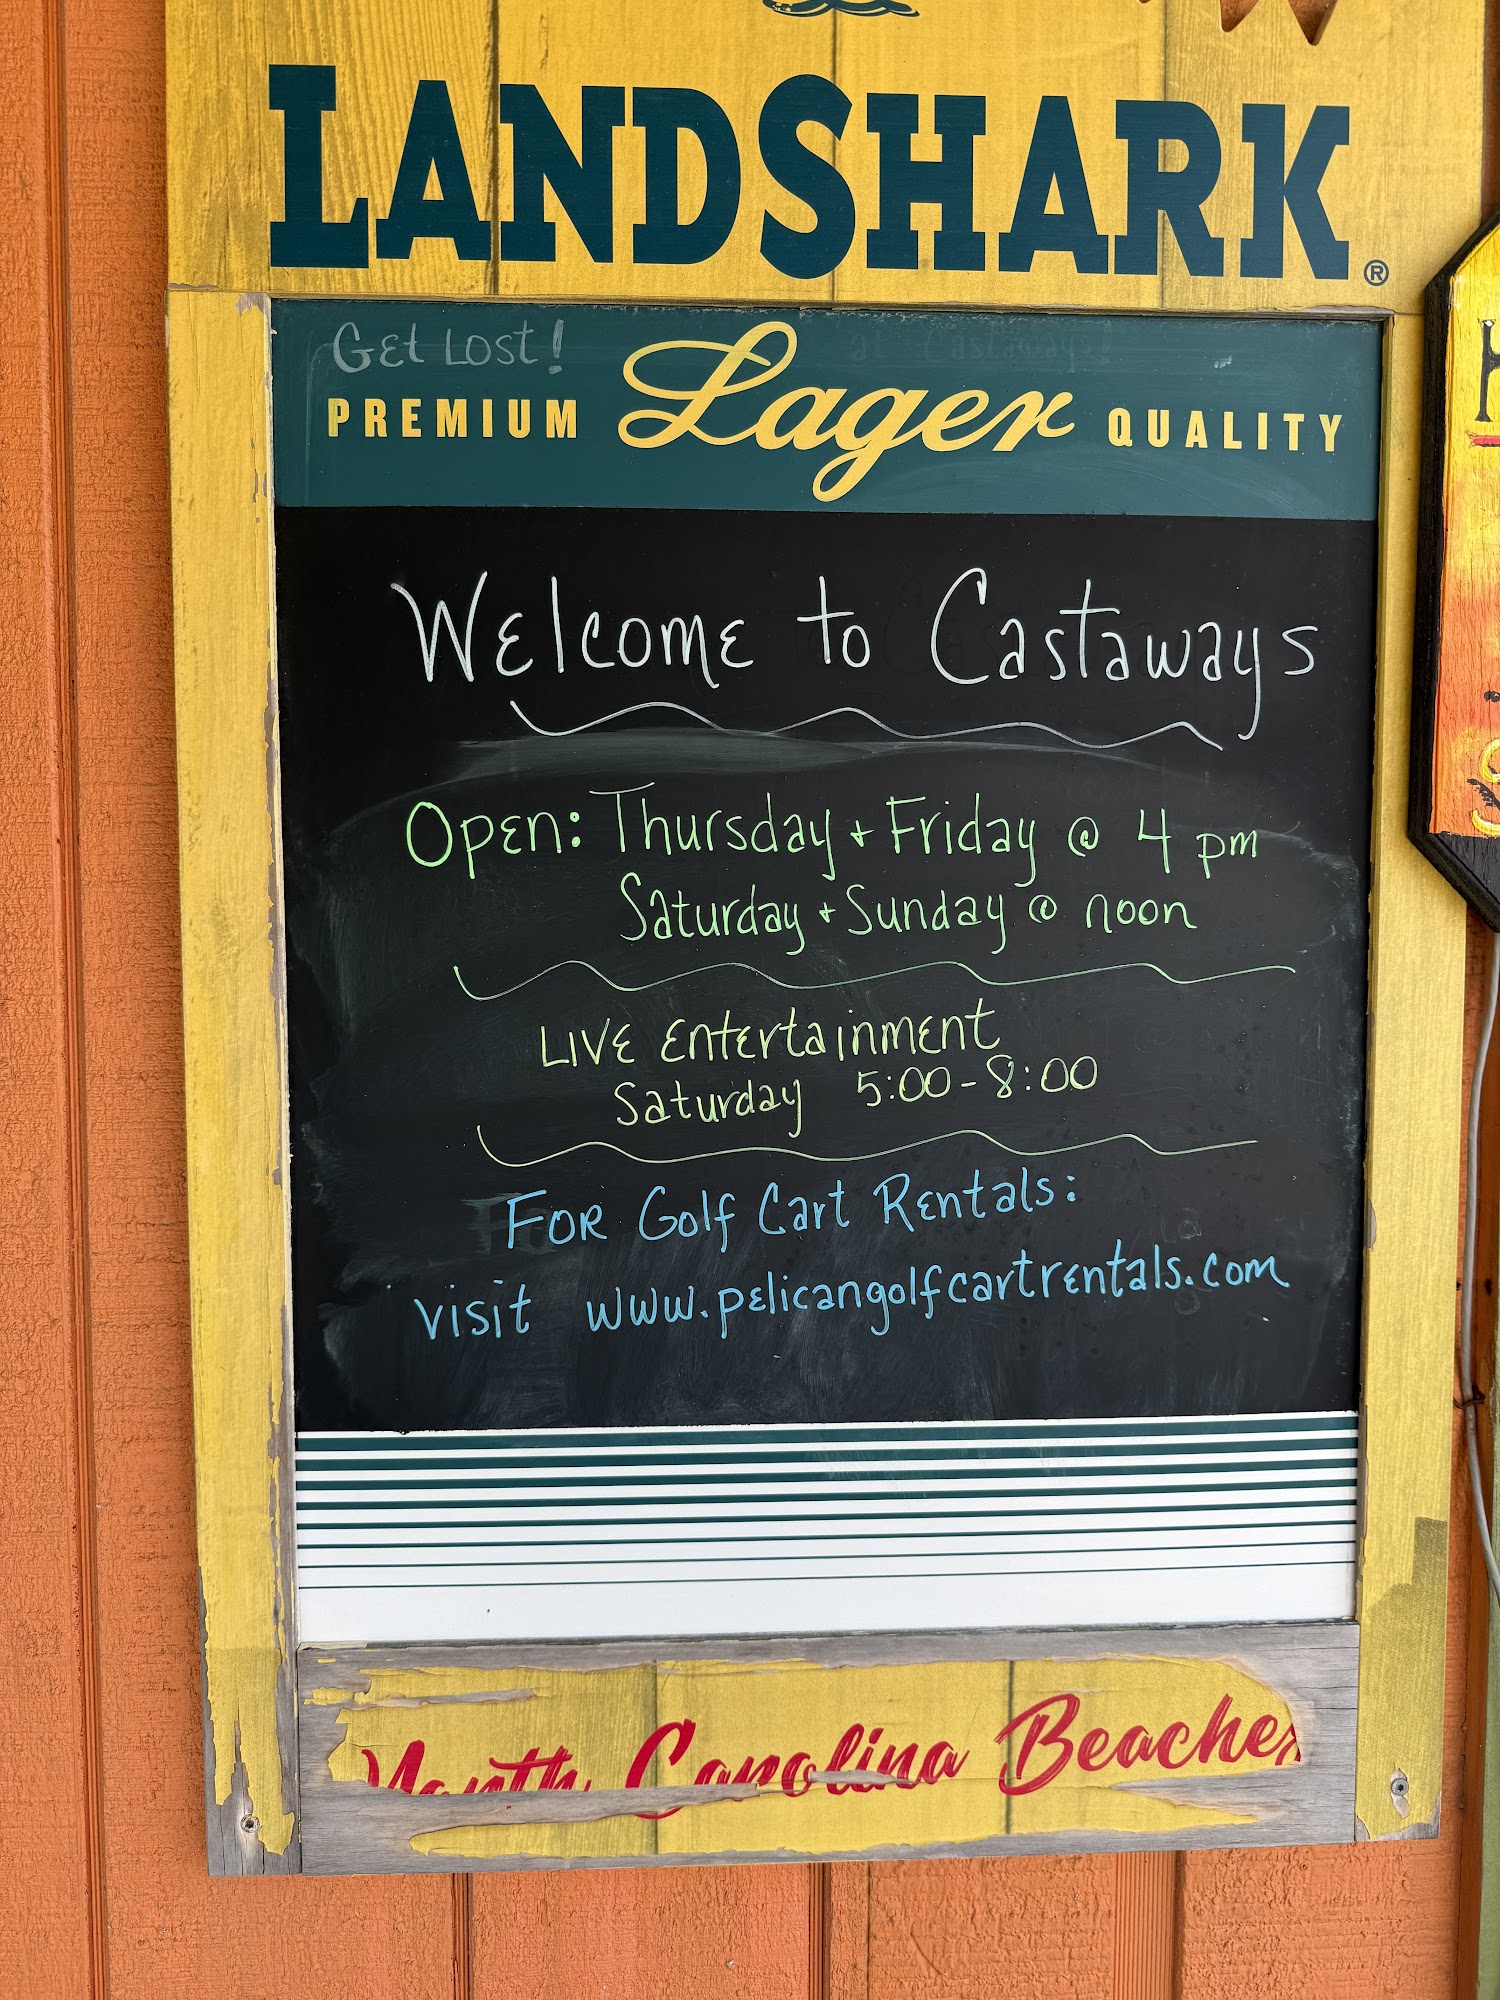 LANDSHARK®
Get Lost! at Castaways!
PREMIUM Lager QUALITY
Welcome to Castaways
Open: Thursday + Friday @ 4 pm
Saturday + Sunday @ noon
Live Entertainment
Saturday 5:00-8:00
For Golf Cart Rentals:
visit www.pelicangolfcartrentals.com
North Carolina Beaches